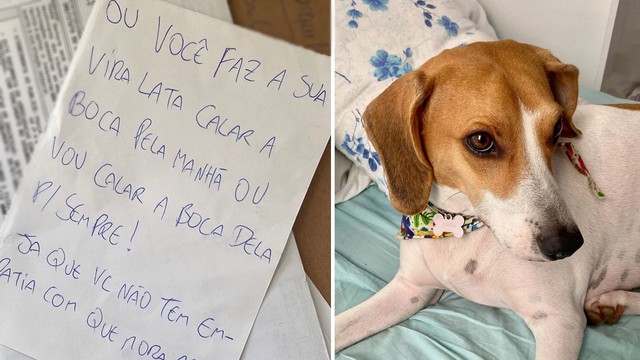 OU VOCÊ FAZ A SUA
VIRA LATA CALAR A
BOCA PELA MANHÃ OU
VOU CALAR A BOCA DELA
P/ SEMPRE!
JA QUE VC NÃO TEM EM-
PATIA COM QUE MORA